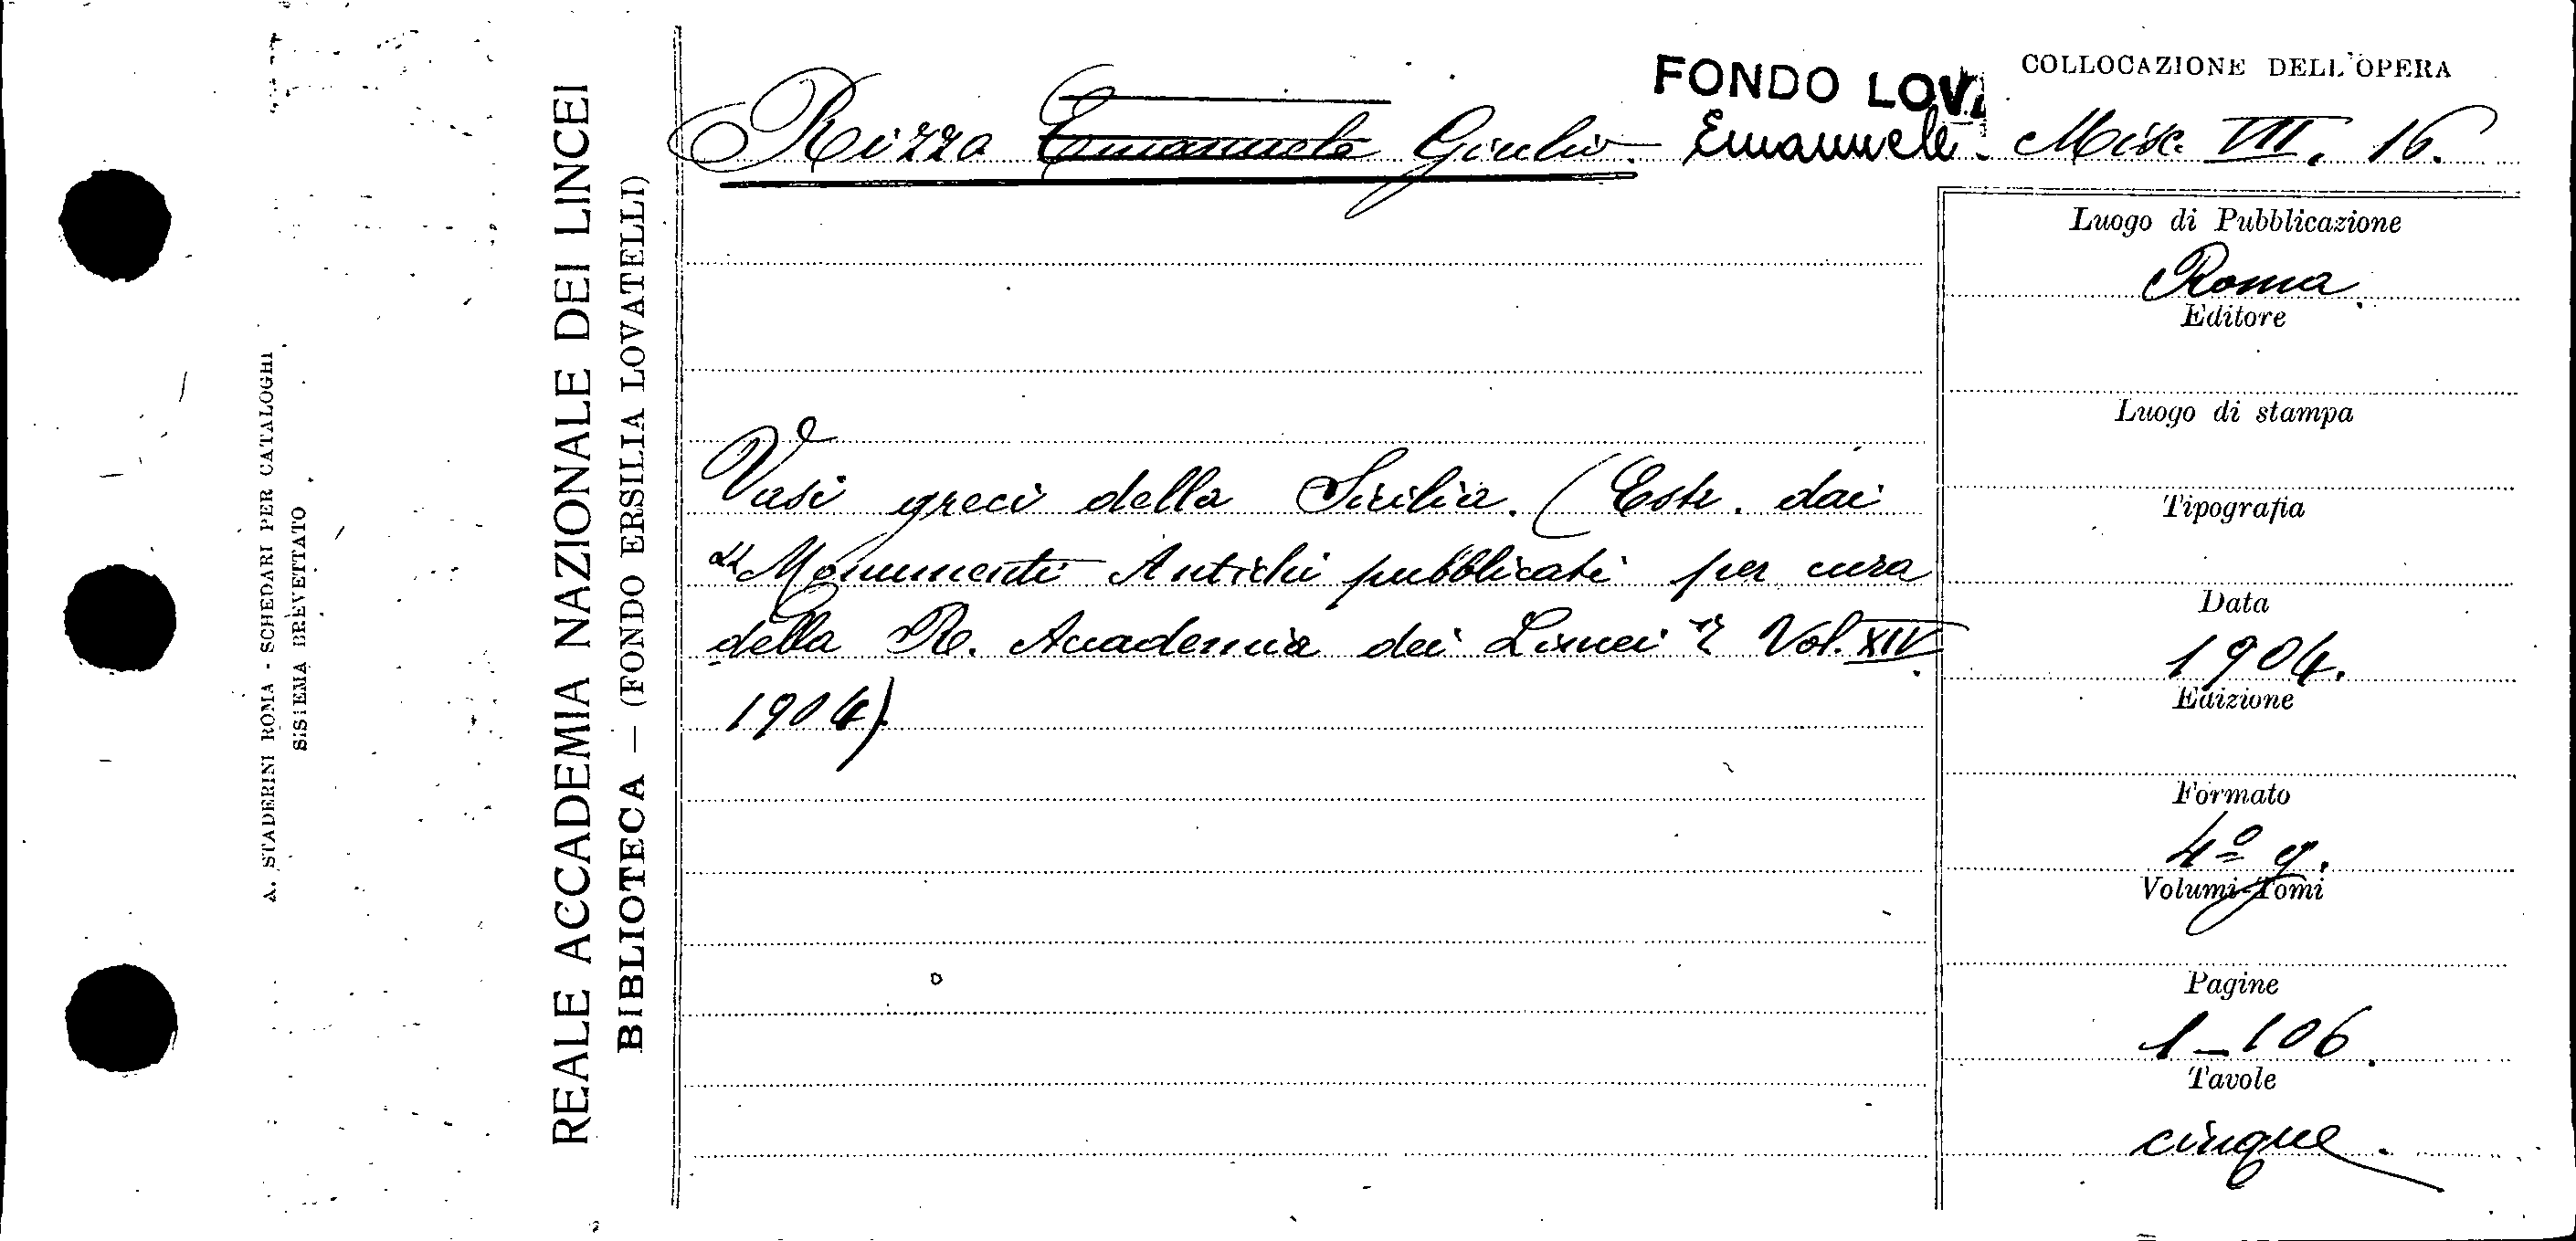 FONDO LOV
COLLOCAZIONE DELL'OPERA
Rizzo Emanuele Giulio. Emanuele. Misc. VII. 16.
Vasi greci della Sicilia. (Estr. dai
"Monumenti Antichi pubblicati per cura
della R. Accademia dei Lincei" Vol. XIV
1904)
Luogo di Pubblicazione
Roma.
Editore
Luogo di stampa
Tipografia
Data
1904.
Edizione
Formato
4º g.
Volumi-Tomi
Pagine
1-106.
Tavole
cinque.
REALE ACCADEMIA NAZIONALE DEI LINCEI
BIBLIOTECA — (FONDO ERSILIA LOVATELLI)
A. STADERINI ROMA - SCHEDARI PER CATALOGHI
SISTEMA BREVETTATO